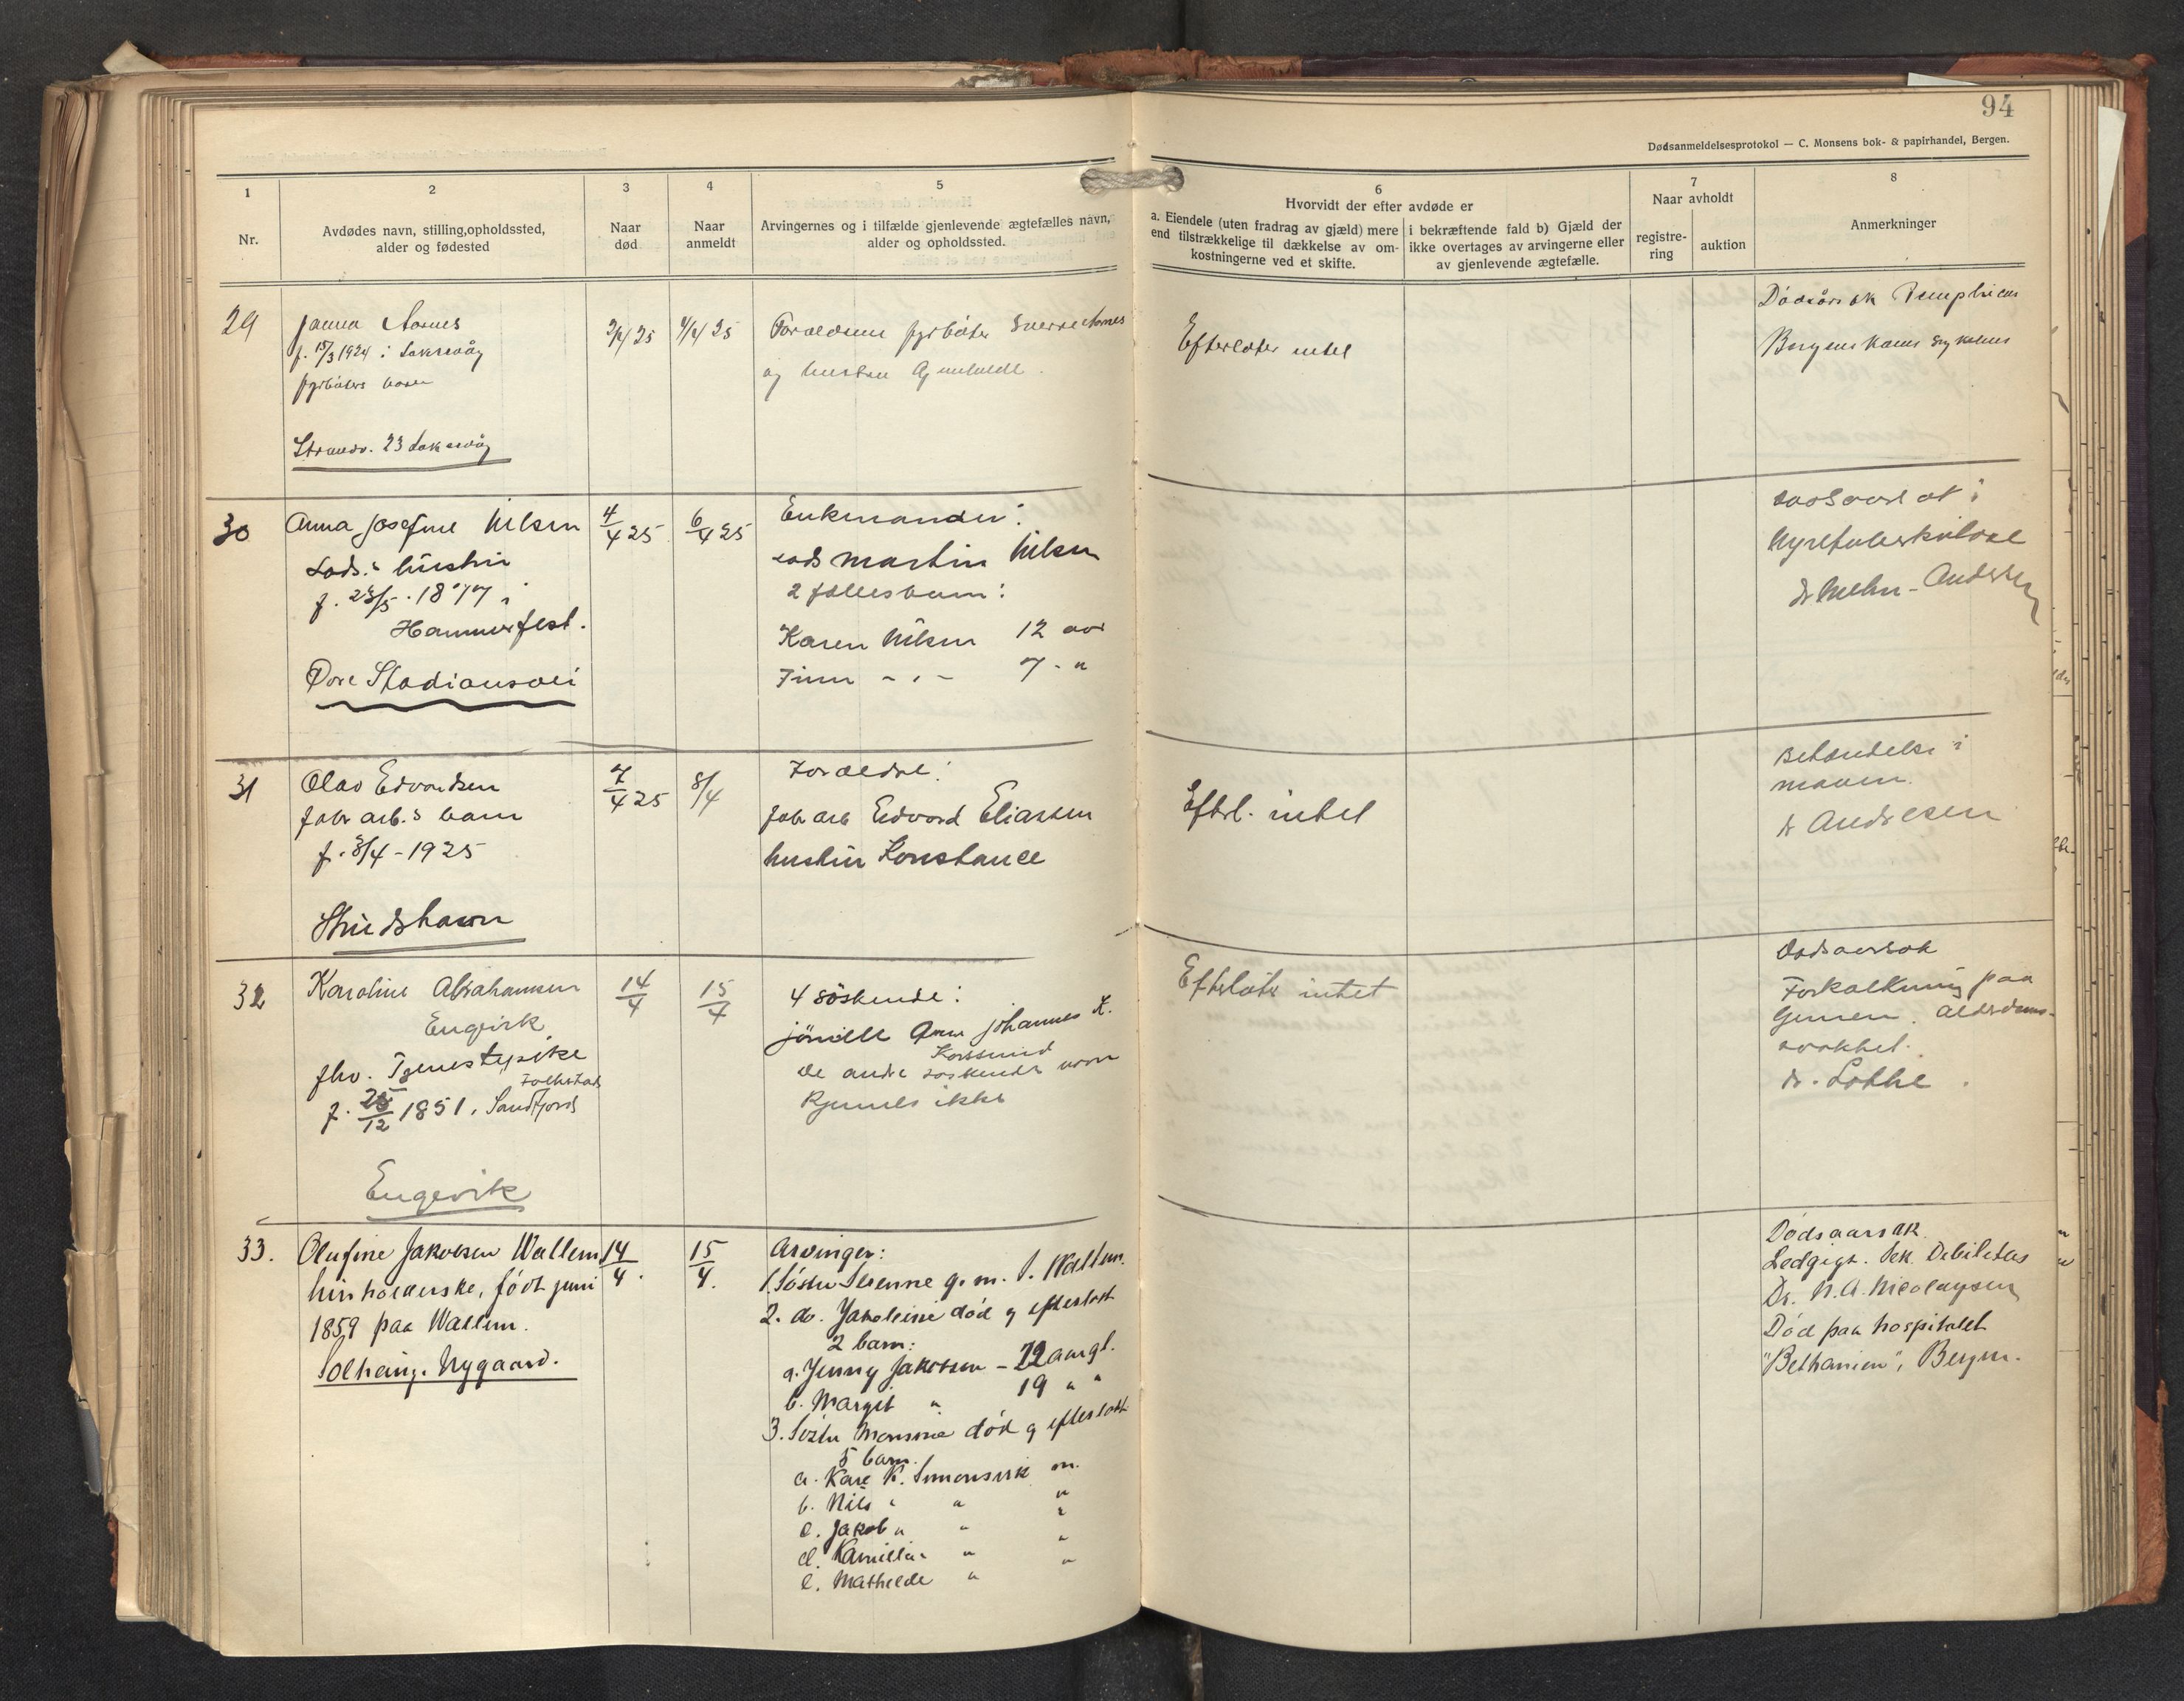 94
Dødsanmeldelsesprotokol — C. Monsens bok- & papirhandel, Bergen.
1
Nr.
2
Avdødes navn, stilling, opholdssted,
alder og fødested
3
Naar
død
4
Naar
anmeldt
5
Arvingernes og i tilfælde gjenlevende ægtefælles navn,
alder og opholdssted.
6
Hvorvidt der efter avdøde er
a. Eiendele (uten fradrag av gjæld) mere
end tilstrækkelige til dækkelse av om-
kostningerne ved et skifte.
i bekræftende fald b) Gjæld der
ikke overtages av arvingerne eller
av gjenlevende ægtefælle.
7
Naar avholdt
registre-
ring
auktion
8
Anmerkninger
29
f. 15/3 1924 i Laksevåg
fyrbøters barn
Strandv. 23 Laksevåg
2/4 25
4/4 25
Forældrene fyrbøter Sverre
og hustru
Efterlater intet
Dødsårsak
Bergens Komm Sykehus
30
Anna Josefine Nilsen
Lods.s hustru
f. 23/5 . 1877 i
Hammerfest.
Øvre Stadionsvei
4/4 25
6/4 25
Enkemanden:
Lods Martin Nilsen
2 fællesbarn:
Karen Nilsen 12 aar
Finn - " - 7 - "
dødsaarsak
Nyretuberkulose
31
Olav Edvardsen
fabr arb.s barn
f. 3/4 - 1925
7/4 25
8/4
Forældre:
fabr arb Edvard Eliassen
hustru Konstance
Efterl. intet
i
maven.
dr Andresen
32
Karoline Abrahamsen
Engevik
fhv. Tjenestepike
f. 25/12 1851, Sandfjord
Engevik
14/4
15/4
4 søskende:
Johannes K.
de andre søskendes navn
kjennes ikke
Efterlater intet
Dødsaarsak
Forkalkning paa
hjernen. Alderdoms-
svakhet.
dr. Lothe.
33.
Olufine Jakobsen Wallem
husholderske, født juni
1859 paa Wallem.
Solhaug. Nygaard.
14/4.
15/4.
Arvinger:
1. Søster g. m. Wallem.
2. do. Jakobine død og efterlatt
2 barn:
a. Jenny Jakobsen - 22 aar gl.
b. Margit " 19 " "
3. Søster Monsine død og efterlatt
5 barn.
a. Kare K. Simonsvik m.
b. Nils " " "
c. Jakob " " "
d. Kamilla " " "
e. Mathilde " "
Dødsaarsak
Ledgigt. Debilitas
Dr. N. A. Nicolaysen
Død paa hospitalet
"Bethanien", Bergen.